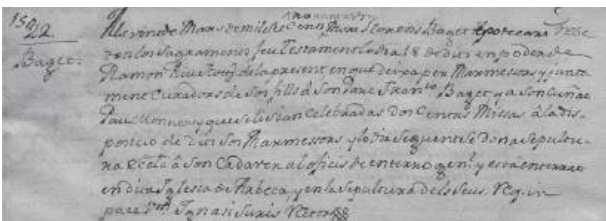 22
Baget
Als vint de Mars de mil set Cents morí Llorens Baget Apotecari rebe
ren los Sagraments feu testament lo dia 18 de dit en poder de
Ramon de la present en que deixa per Marmessors y junta
ment Curadors de son fill á Son Pare Fran.co Baget y a Son Cuñat
Pau Monner y que se li sian Celebradas dos Centas Missas á la dis
posicio de dits Son Marmessors y lo dia Seguent Se dona Sepultu
ra Ecl.ca á Son Cadaver al ofici de enterro gen.l y está enterrat
en dita Iglesia de Arbeca, y en la Sepultura dels Seus. Req. in
pace Ignasi Rector